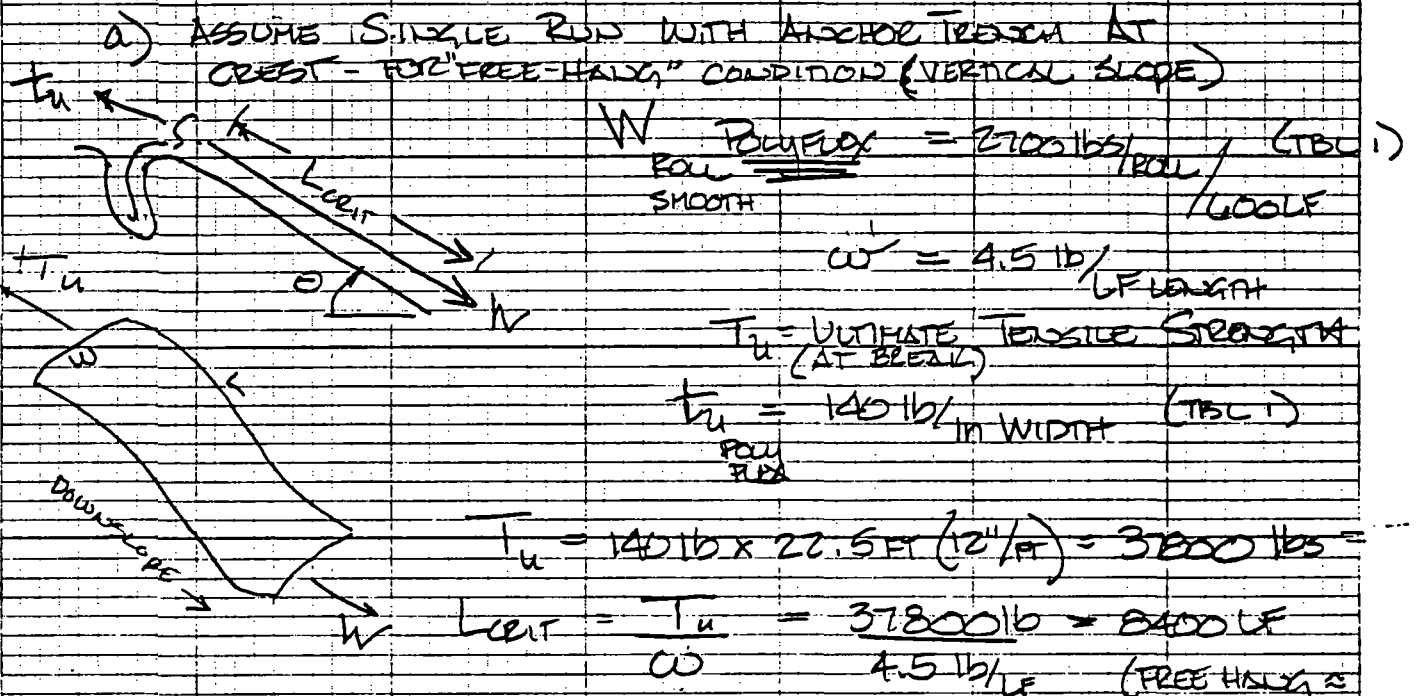 a) ASSUME SINGLE RUN WITH ANCHOR TRENCH AT
CREST - FOR "FREE-HANG" CONDITION (VERTICAL SLOPE)
tu
W ROLL SMOOTH POLYFLEX = 2700 lbs/ROLL/600LF (TBL 1)
LCRIT
θ
W
ω = 4.5 lb/LF LENGTH
Tu
Tu = ULTIMATE TENSILE STRENGTH
(AT BREAK)
w
L
tu POLY FLEX = 140 lb/in WIDTH (TBL 1)
DOWNSLOPE
W
Tu = 140 lb x 22.5 FT (12"/FT) = 37800 lbs =
LCRIT = Tu/ω = 37800 lb/4.5 lb/LF = 8400 LF
(FREE HANG ≈